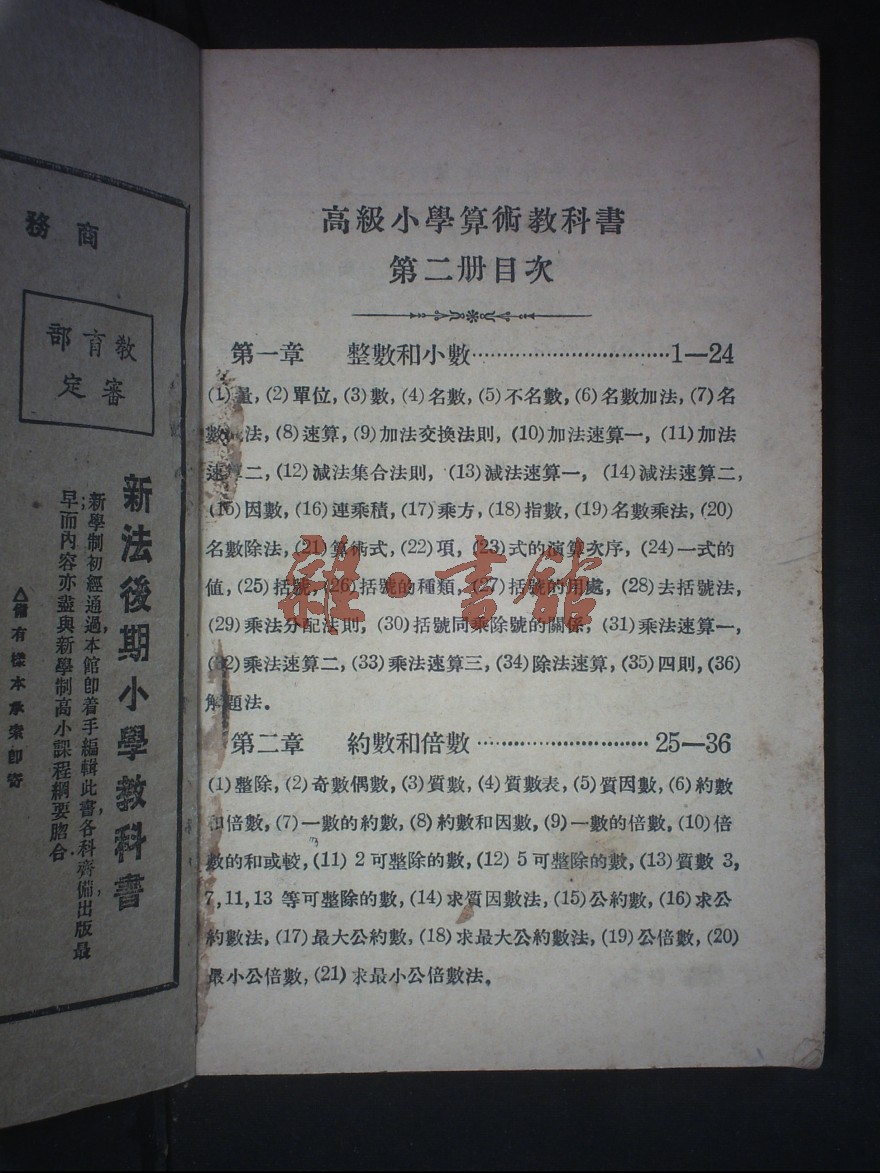 高級小學算術教科書
第二册目次
第一章 整數和小數……………………………1—24
(1)量, (2)單位, (3)數, (4)名數, (5)不名數, (6)名數加法, (7)名
數 法, (8)速算, (9)加法交換法則, (10)加法速算一, (11)加法
速算二, (12)減法集合法則, (13)減法速算一, (14)減法速算二,
(15)因數, (16)連乘積, (17)乘方, (18)指數, (19)名數乘法, (20)
名數除法, (21)算術式, (22)項, (23)式的演算次序, (24)一式的
值, (25)括號, (26)括號的種類, (27)括號的用處, (28)去括號法,
(29)乘法分配法則, (30)括號同乘除號的關係, (31)乘法速算一,
(32)乘法速算二, (33)乘法速算三, (34)除法速算, (35)四則, (36)
解題法。
第二章 約數和倍數……………………… 25—36
(1)整除, (2)奇數偶數, (3)質數, (4)質數表, (5)質因數, (6)約數
和倍數, (7)一數的約數, (8)約數和因數, (9)一數的倍數, (10)倍
數的和或較, (11) 2 可整除的數, (12) 5 可整除的數, (13)質數 3,
7, 11, 13 等可整除的數, (14)求質因數法, (15)公約數, (16)求公
約數法, (17)最大公約數, (18)求最大公約數法, (19)公倍數, (20)
最小公倍數, (21)求最小公倍數法。
雜·書館
商務
教育部
審定
新法後期小學教科書
新學制初經通過,本館卽着手編輯此書,各科齊備,出版最
早,而內容亦盡與新學制高小課程綱要脗合.
△備有樣本承索卽寄